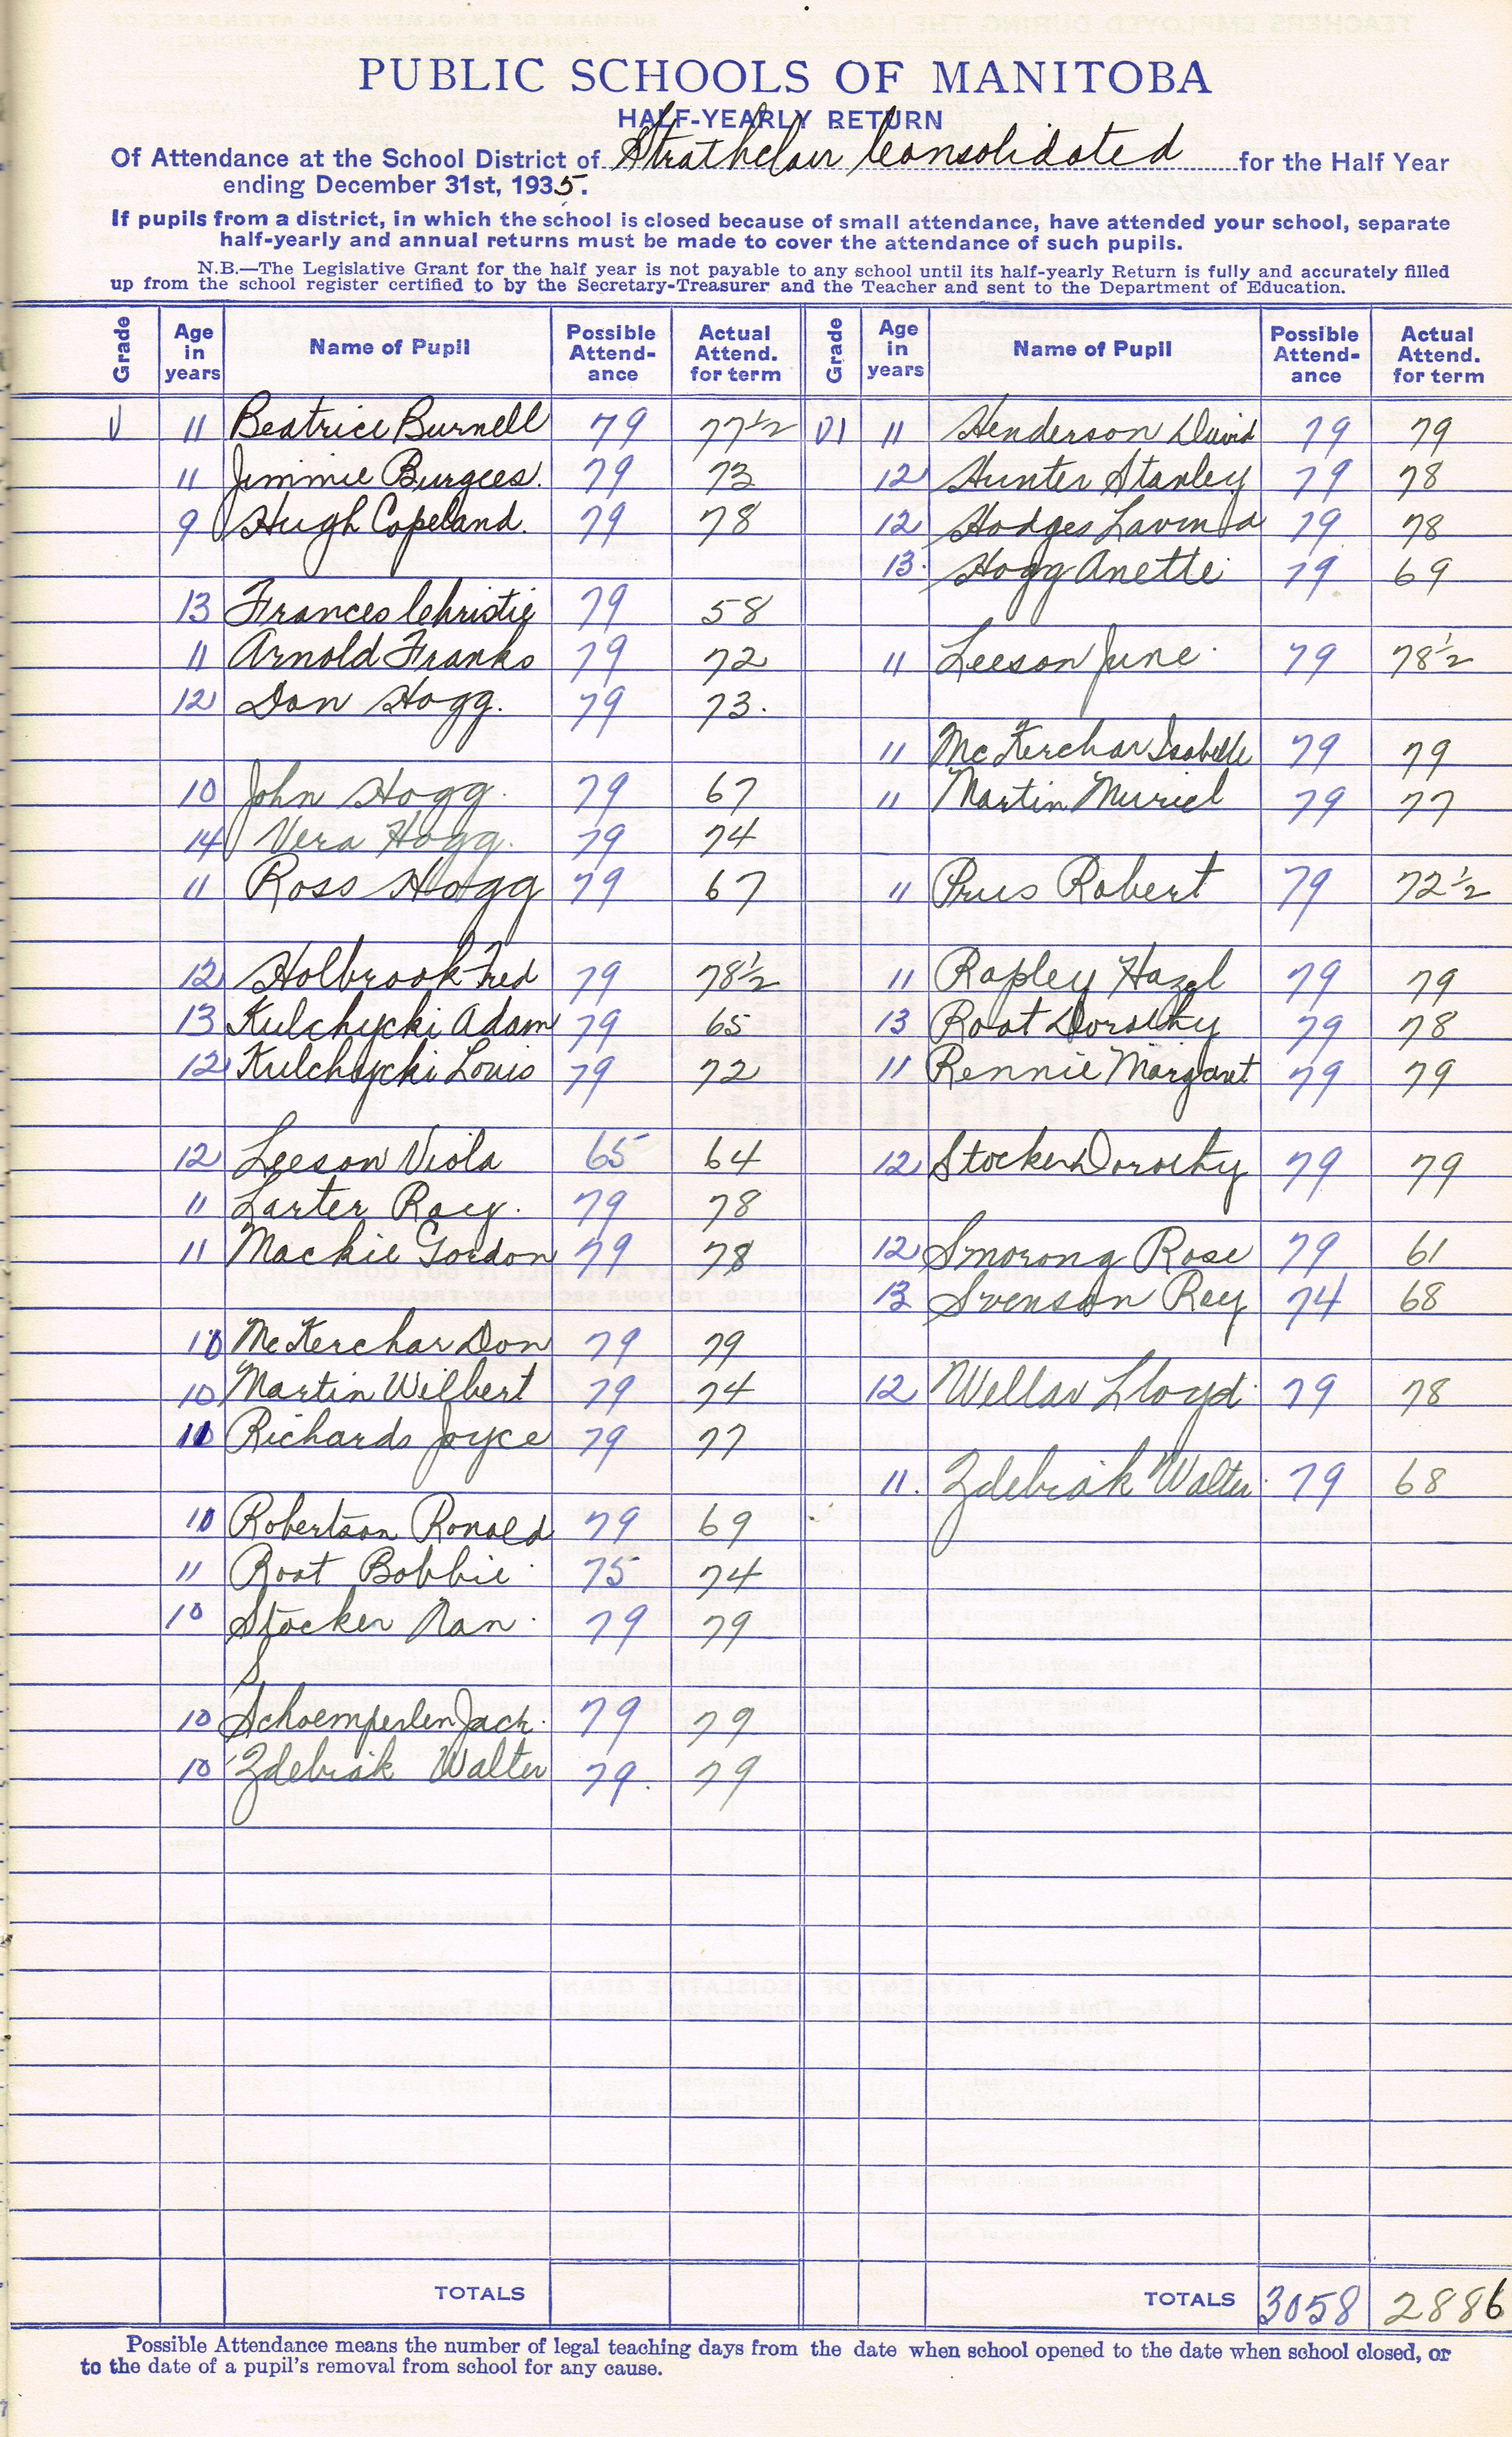 PUBLIC SCHOOLS OF MANITOBA
HALF-YEARLY RETURN
Of Attendance at the School District of Strathclair Consolidated for the Half Year
ending December 31st, 1935.
If pupils from a district, in which the school is closed because of small attendance, have attended your school, separate
half-yearly and annual returns must be made to cover the attendance of such pupils.
N.B.—The Legislative Grant for the half year is not payable to any school until its half-yearly Return is fully and accurately filled
up from the school register certified to by the Secretary-Treasurer and the Teacher and sent to the Department of Education.
Grade Age in years Name of Pupil Possible Attend-ance Actual Attend. for term Grade Age in years Name of Pupil Possible Attend-ance Actual Attend. for term
V 11 Beatrice Burnell 79 77½
11 Jimmie Burgess. 79 73
9 Hugh Copeland. 79 78
13 Frances Christie 79 58
11 Arnold Franks 79 72
12 Don Hogg. 79 73.
10 John Hogg. 79 67
14 Vera Hogg. 79 74
11 Ross Hogg 79 67
12 Holbrook Fred 79 78½
13 Kulchycki Adam 79 65
12 Kulchycki Louis 79 72
12 Leeson Viola 65 64
11 Larter Roy. 79 78
11 Mackie Gordon 79 78
10 McKerchar Don 79 79
10 Martin Wilbert 79 74
Richards Joyce 79 77
10 Robertson Ronald 79 69
11 Root Bobbie 75 74
10 Stocker Nan 79 79
S
10 Schoemperlen Jack. 79 79
10 Zdebiak Walter 79. 79
VI 11 Henderson David 79 79
12 Hunter Stanley 79 78
12 Hodges Lavina 79 78
13. Hogg Anette 79 69
11 Leeson June 79 78½
11 McKerchar Isabelle 79 79
11 Martin Muriel 79 77
11 Prus Robert 79 72½
11 Rapley Hazel 79 79
13 Root Dorothy 79 78
11 Rennie Margaret 79 79
12 Stocker Dorothy 79 79
12 Smorong Rose 79 61
13 Svenson Roy 74 68
12 Wellar Lloyd 79 78
11. Zdebiak Walter 79 68
TOTALS TOTALS 3058 2886
Possible Attendance means the number of legal teaching days from the date when school opened to the date when school closed, or
to the date of a pupil's removal from school for any cause.